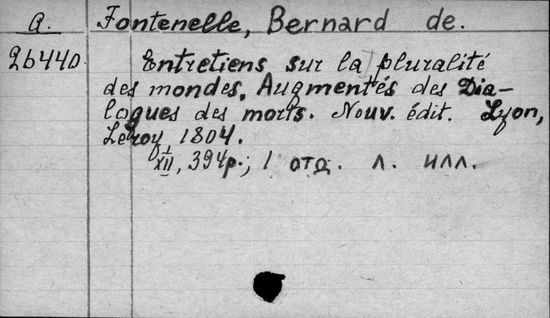 a. Fontenelle, Bernard de.
26440. Entretiens sur la pluralité
des mondes. Augmentés des Dia-
logues des morts. Nouv. édit. Lyon,
Leroy, 1804.
XII, 394p.; 1 отд. л. илл.